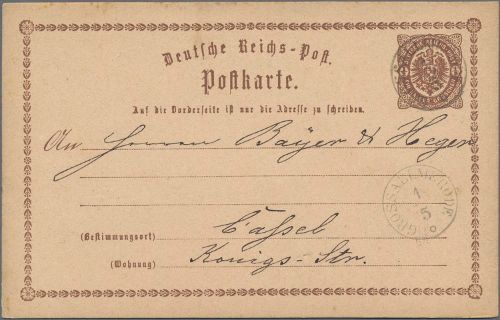 Deutsche Reichs-Post.
Postkarte.
Auf die Vorderseite ist nur die Adresse zu schreiben.
An Herren Bäyer & Heger
GROSSALMERODE
1
5
(Bestimmungsort) Cassel
(Wohnung) Königs-Str.